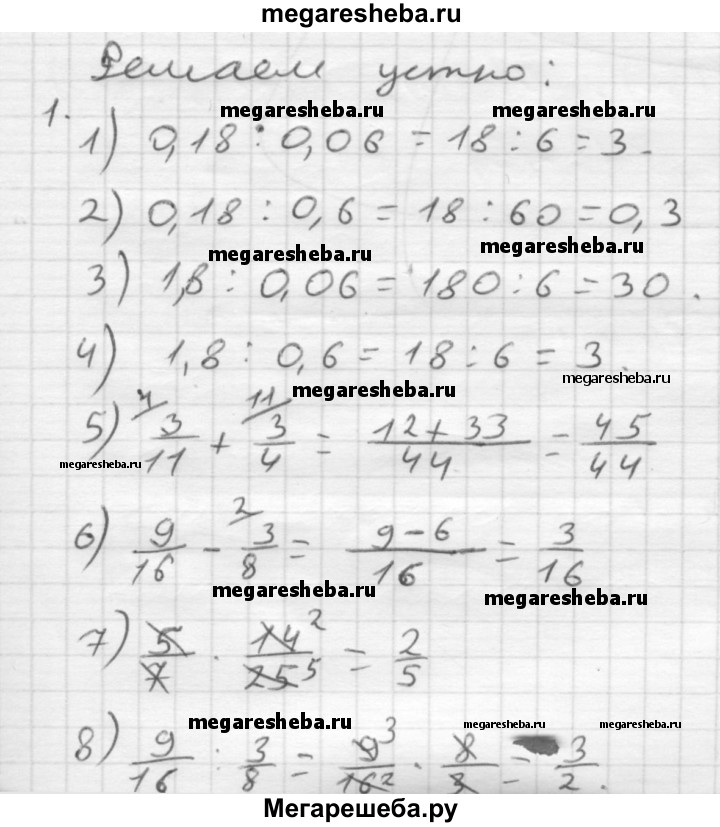 megaresheba.ru
Решаем устно:
megaresheba.ru megaresheba.ru
1.
1) 0,18 : 0,06 = 18 : 6 = 3.
2) 0,18 : 0,6 = 18 : 60 = 0,3
megaresheba.ru megaresheba.ru
3) 1,8 : 0,06 = 180 : 6 = 30.
4) 1,8 : 0,6 = 18 : 6 = 3.
megaresheba.ru megaresheba.ru
5) 4/ 3/11 + 11/ 3/4 = (12+33)/44 = 45/44
megaresheba.ru
6) 9/16 - 2/ 3/8 = (9-6)/16 = 3/16
megaresheba.ru megaresheba.ru
7) 5/7 · 14²/25⁵ = 2/5
megaresheba.ru megaresheba.ru megaresheba.ru
8) 9/16 : 3/8 = 9³/16² · 8/3 = 3/2.
Мегарешеба.ру